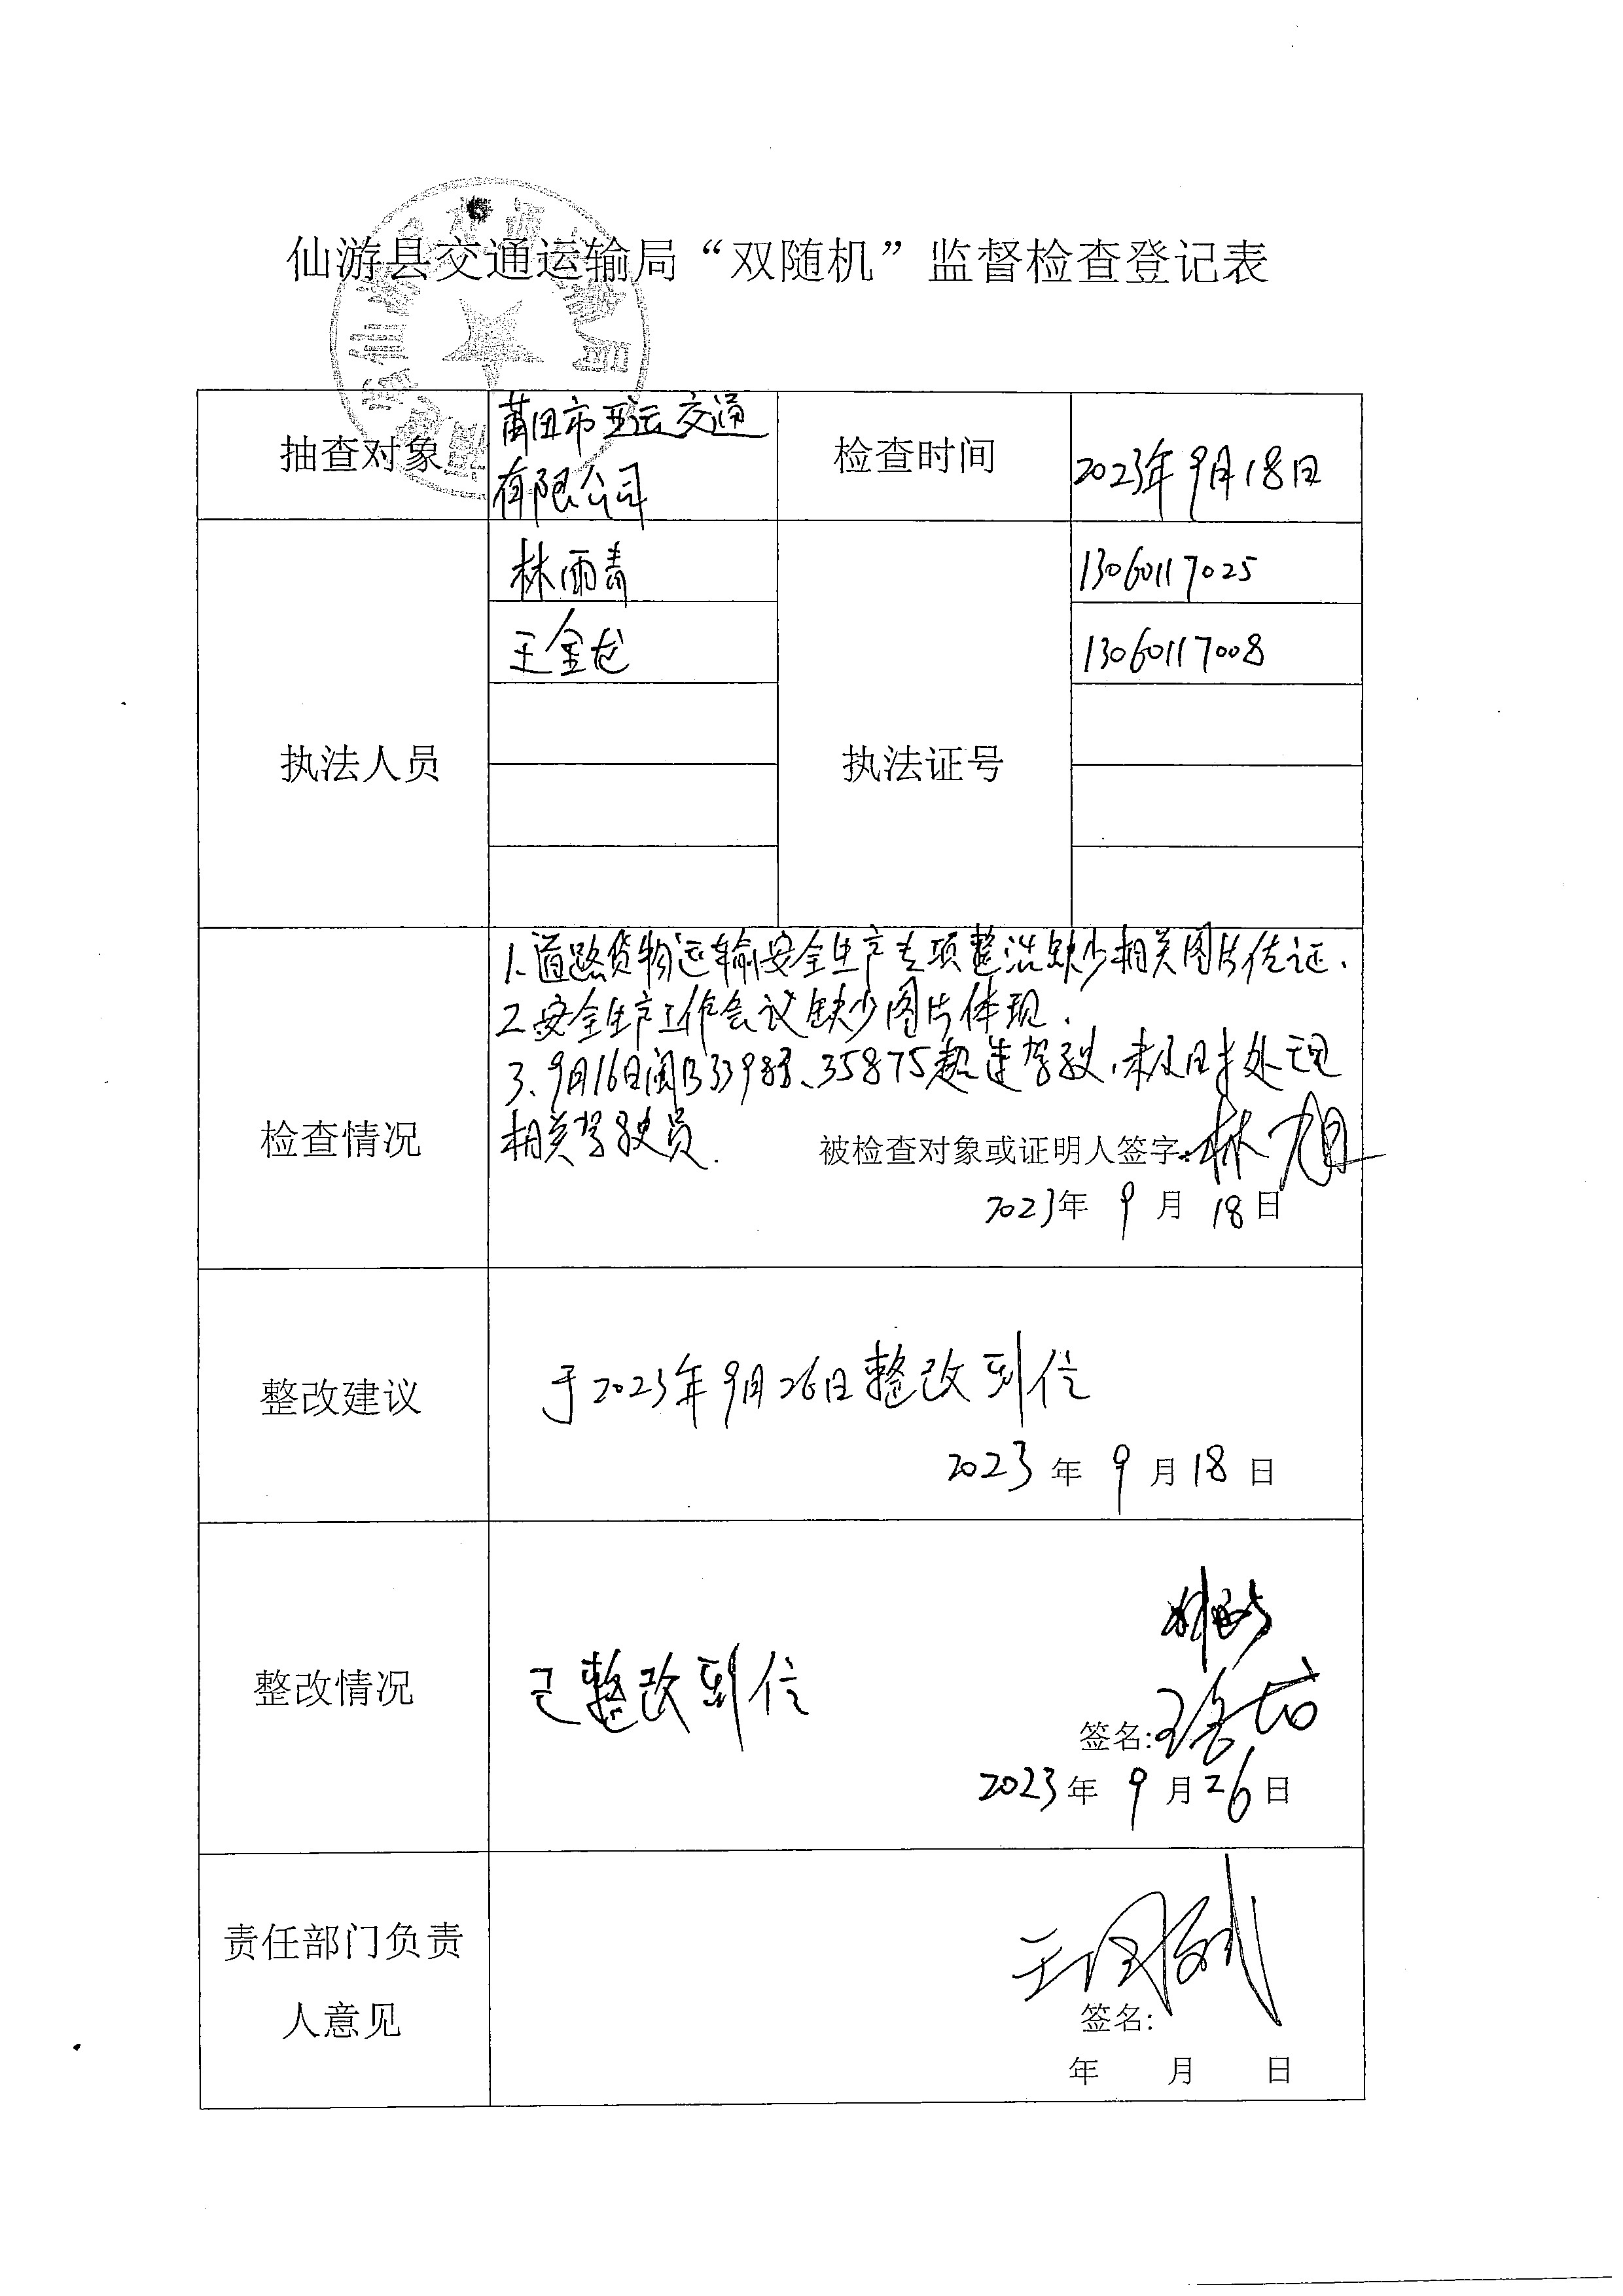 仙游县交通运输局“双随机”监督检查登记表
抽查对象
莆田市亚运交通
有限公司
检查时间
2023年9月18日
执法人员
林雨青
王金龙
执法证号
13060117025
13060117008
检查情况
1.道路货物运输安全生产专项整治缺少相关图片佐证、
2.安全生产工作会议缺少图片体现.
3、9月16日闽B33988、35875超速驾驶,未及时处理
相关驾驶员.
被检查对象或证明人签字:林
2023年 9 月 18日
整改建议
于2023年9月26日整改到位
2023 年 9 月 18 日
整改情况
已整改到位
签名:王金龙
2023 年 9 月 26 日
责任部门负责
人意见
签名:
年 月 日